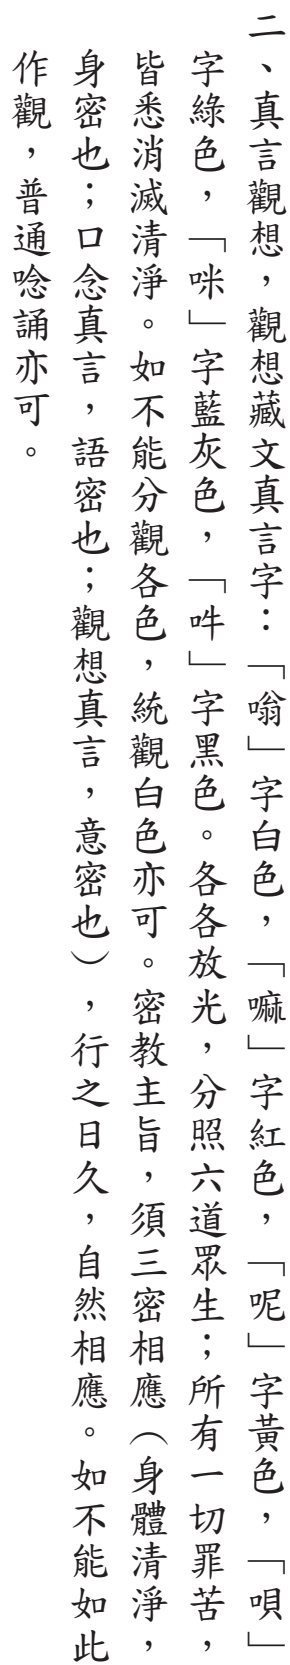 二、真言觀想，觀想藏文真言字：「嗡」字白色，「嘛」字紅色，「呢」字黃色，「唄」
字綠色，「咪」字藍灰色，「吽」字黑色。各各放光，分照六道眾生；所有一切罪苦，
皆悉消滅清淨。如不能分觀各色，統觀白色亦可。密教主旨，須三密相應（身體清淨，
身密也；口念真言，語密也；觀想真言，意密也），行之日久，自然相應。如不能如此
作觀，普通唸誦亦可。